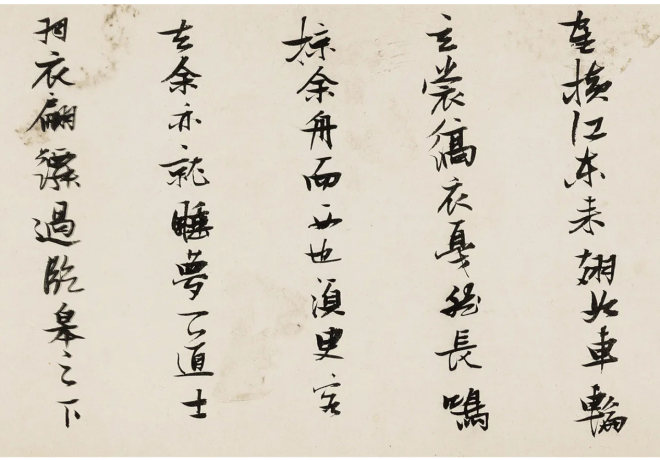 雀橫江東來翅如車輪
玄裳縞衣戛然長鳴
掠余舟而西也須臾客
去余亦就睡夢一道士
羽衣翩躚過臨皋之下